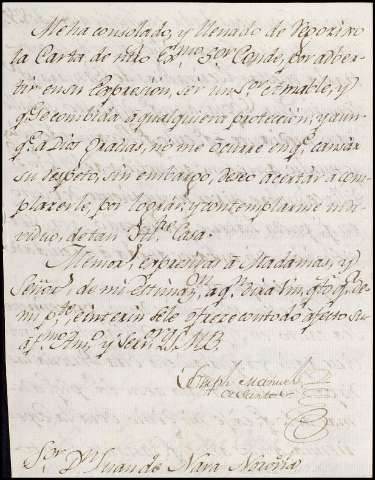 Me ha consolado, y llenado de regocixo
la Carta de ntro Exmo Sor Conde, por adver-
tir en su expresion, ser un Sr. estimable, y
qe. se combida a qualquiera proteccion; y aun-
qe. a Dios gracias, no me ocurre en qe. cansar
su respeto, sin embargo, deseo acertar à com-
plazerle, por lograr, y contemplarme indi-
viduo, de tan Iltre. Casa.
Memors. expresivas à Madamas, y
Señors. de mi Estimaon. aqn.
mi pte. è interin se le ofrece con todo afecto su
apmo. Amo. y Servr. Q.S.M.B.
Joseph Manuel
de
Sor. Dn. Juan de Nava Noroña